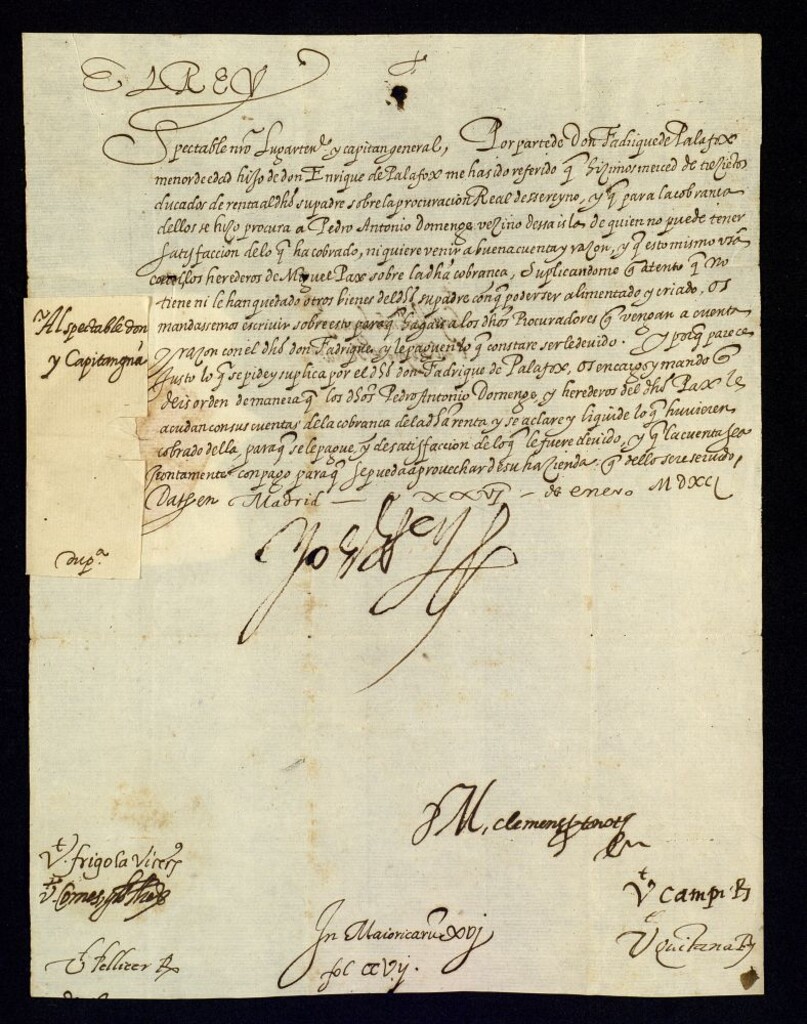 EL REY
Spectable nr̃o Lugarten.te y capitan general, Por parte de Don Fadrique de Palafox
menor de edad hijo de don Enrique de Palafox me ha sido referido q̃ hizimos merced de trezientos
ducados de renta al dho su padre sobre la procuracion Real desse reyno, y q̃ para la cobrança
dellos se hizo procura a Pedro Antonio Domenge vezino dessa isla de quien no puede tener
satisfaccion de lo q̃ ha cobrado, ni quiere venir a buena cuenta y razon, y q̃ esto mismo usã
con el los herederos de Miguel Pax sobre la dha cobranca, Suplicandome q̃ atento q̃ no
tiene ni le han quedado otros bienes del dho su padre con q̃ poder ser alimentado y criado, os
mandassemos escrivir sobre esto para q̃ hagais a los dhos Procuradores q̃ vengan a cuenta
y razon con el dho don Fadrique, y le paguen lo q̃ constare ser le devido. Y porq̃ parece
justo lo q̃ se pide y suplica por el dho don Fadrique de Palafox, os encargo y mando q̃
deis orden de manera q̃ los dhos Pedro Antonio Domenge, y herederos del dho Pax le
acudan con sus cuentas de la cobranca de la dha renta, y se aclare y liquide lo q̃ huvieren
cobrado della, para q̃ se le pague, y de satisfaccion de lo q̃ le fuere devido, y q̃ la cuenta sea
juntamente con pago para q̃ se pueda aprovechar de su hazienda q̃ dello sere servido,
Dat. en Madrid — a XXVJ — de enero MDXCJ
Al spectable don
y Capitan gñal
dup.a
Yo el Rey
M. clemens
V.t frigola Vicecs
V.t Comes
V.t campi R
V.t Pellicer R
V.t Quintana R
In Maioricarũ XVJ
fol. CCVIJ.